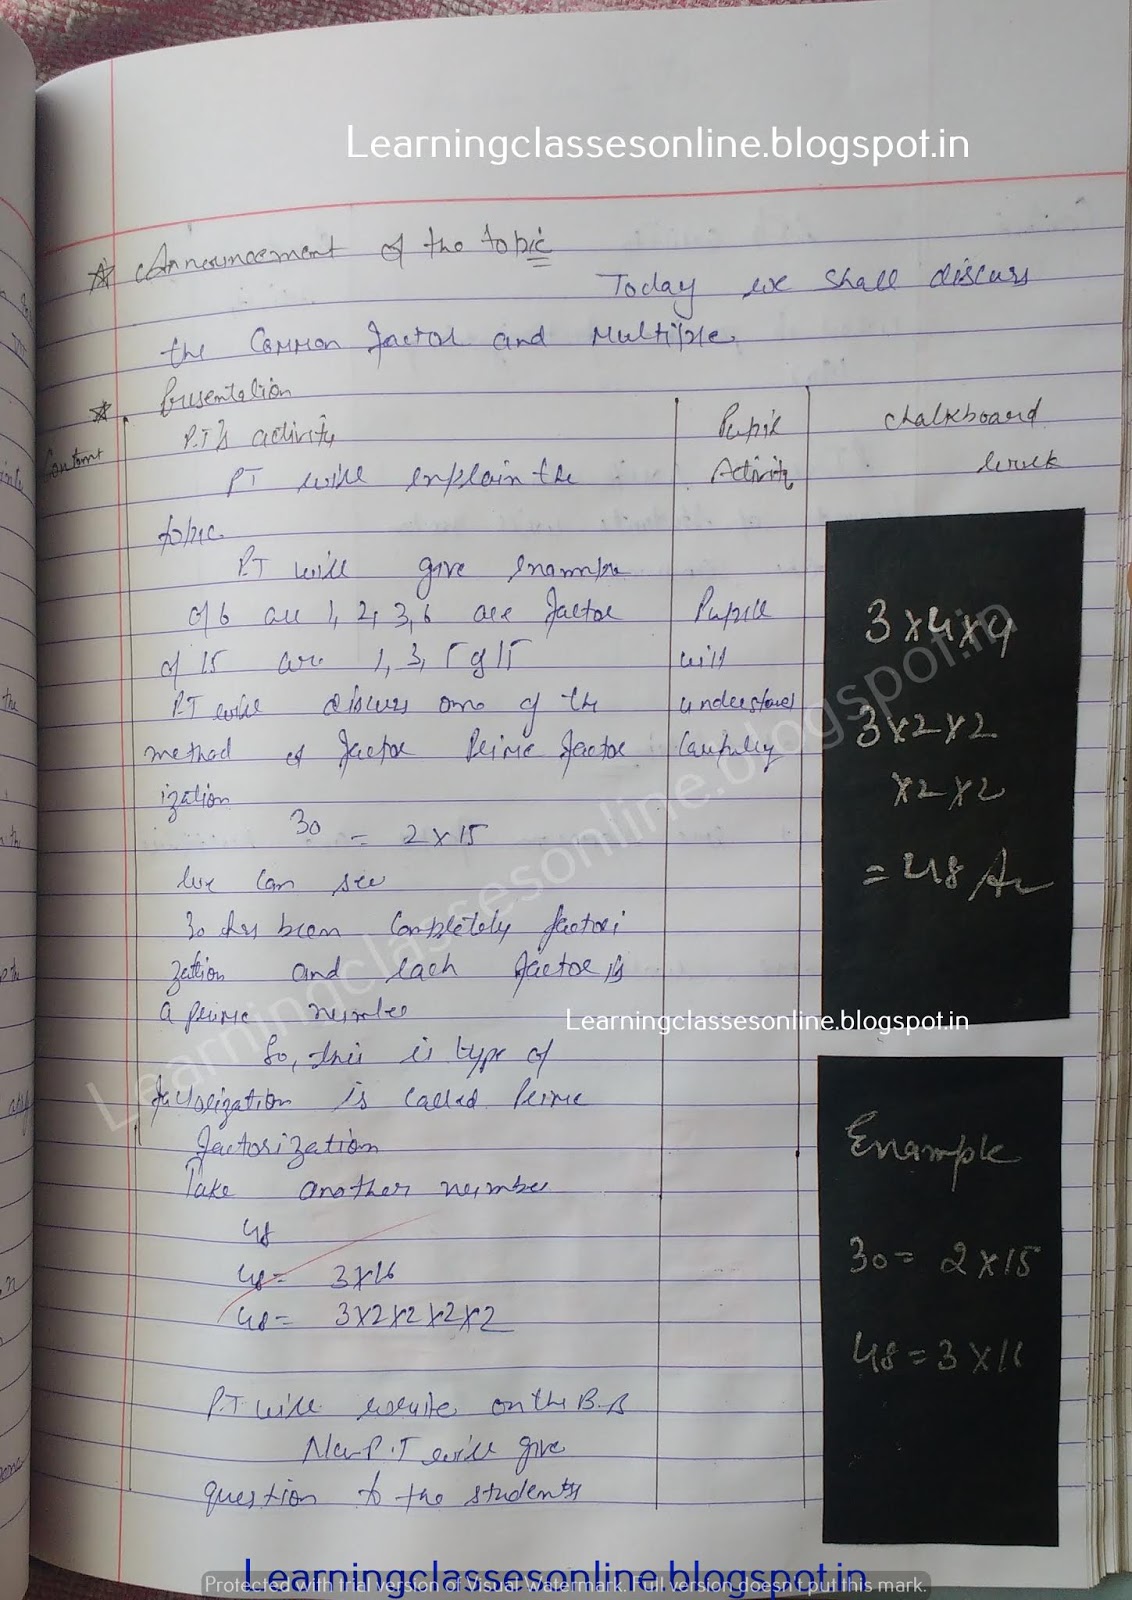 Learningclassesonline.blogspot.in
Announcement of the topic
Today we shall discuss
the Common factor and Multiple.
Presentation
Content
P.T's activity
PT will explain the
topic.
PT will give Example
of 6 are 1, 2, 3, 6 are factor
of 15 are 1, 3, 5 & 15
P.T will discuss one of the
method of factor Prime factor
ization
30 = 2 x 15
We can see
30 has been Completely factori
zation and each factor is
a prime number
So, this is type of
factorization is called Prime
factorization
Take another number
48
48 = 3x16
48 = 3x2x2x2x2
PT will write on the B.B
P.T will give
question to the students
Pupil
Activity
Pupil
will
understand
Carefully
Chalkboard
work
3 x 4 x 4
3 x 2 x 2
x 2 x 2
= 48
Learningclassesonline.blogspot.in
Example
30 = 2 x 15
48 = 3 x
Learningclassesonline.blogspot.in
Learningclassesonline.blogspot.in
Protected with trial version of Visual Watermark. Full version doesn't put this mark.